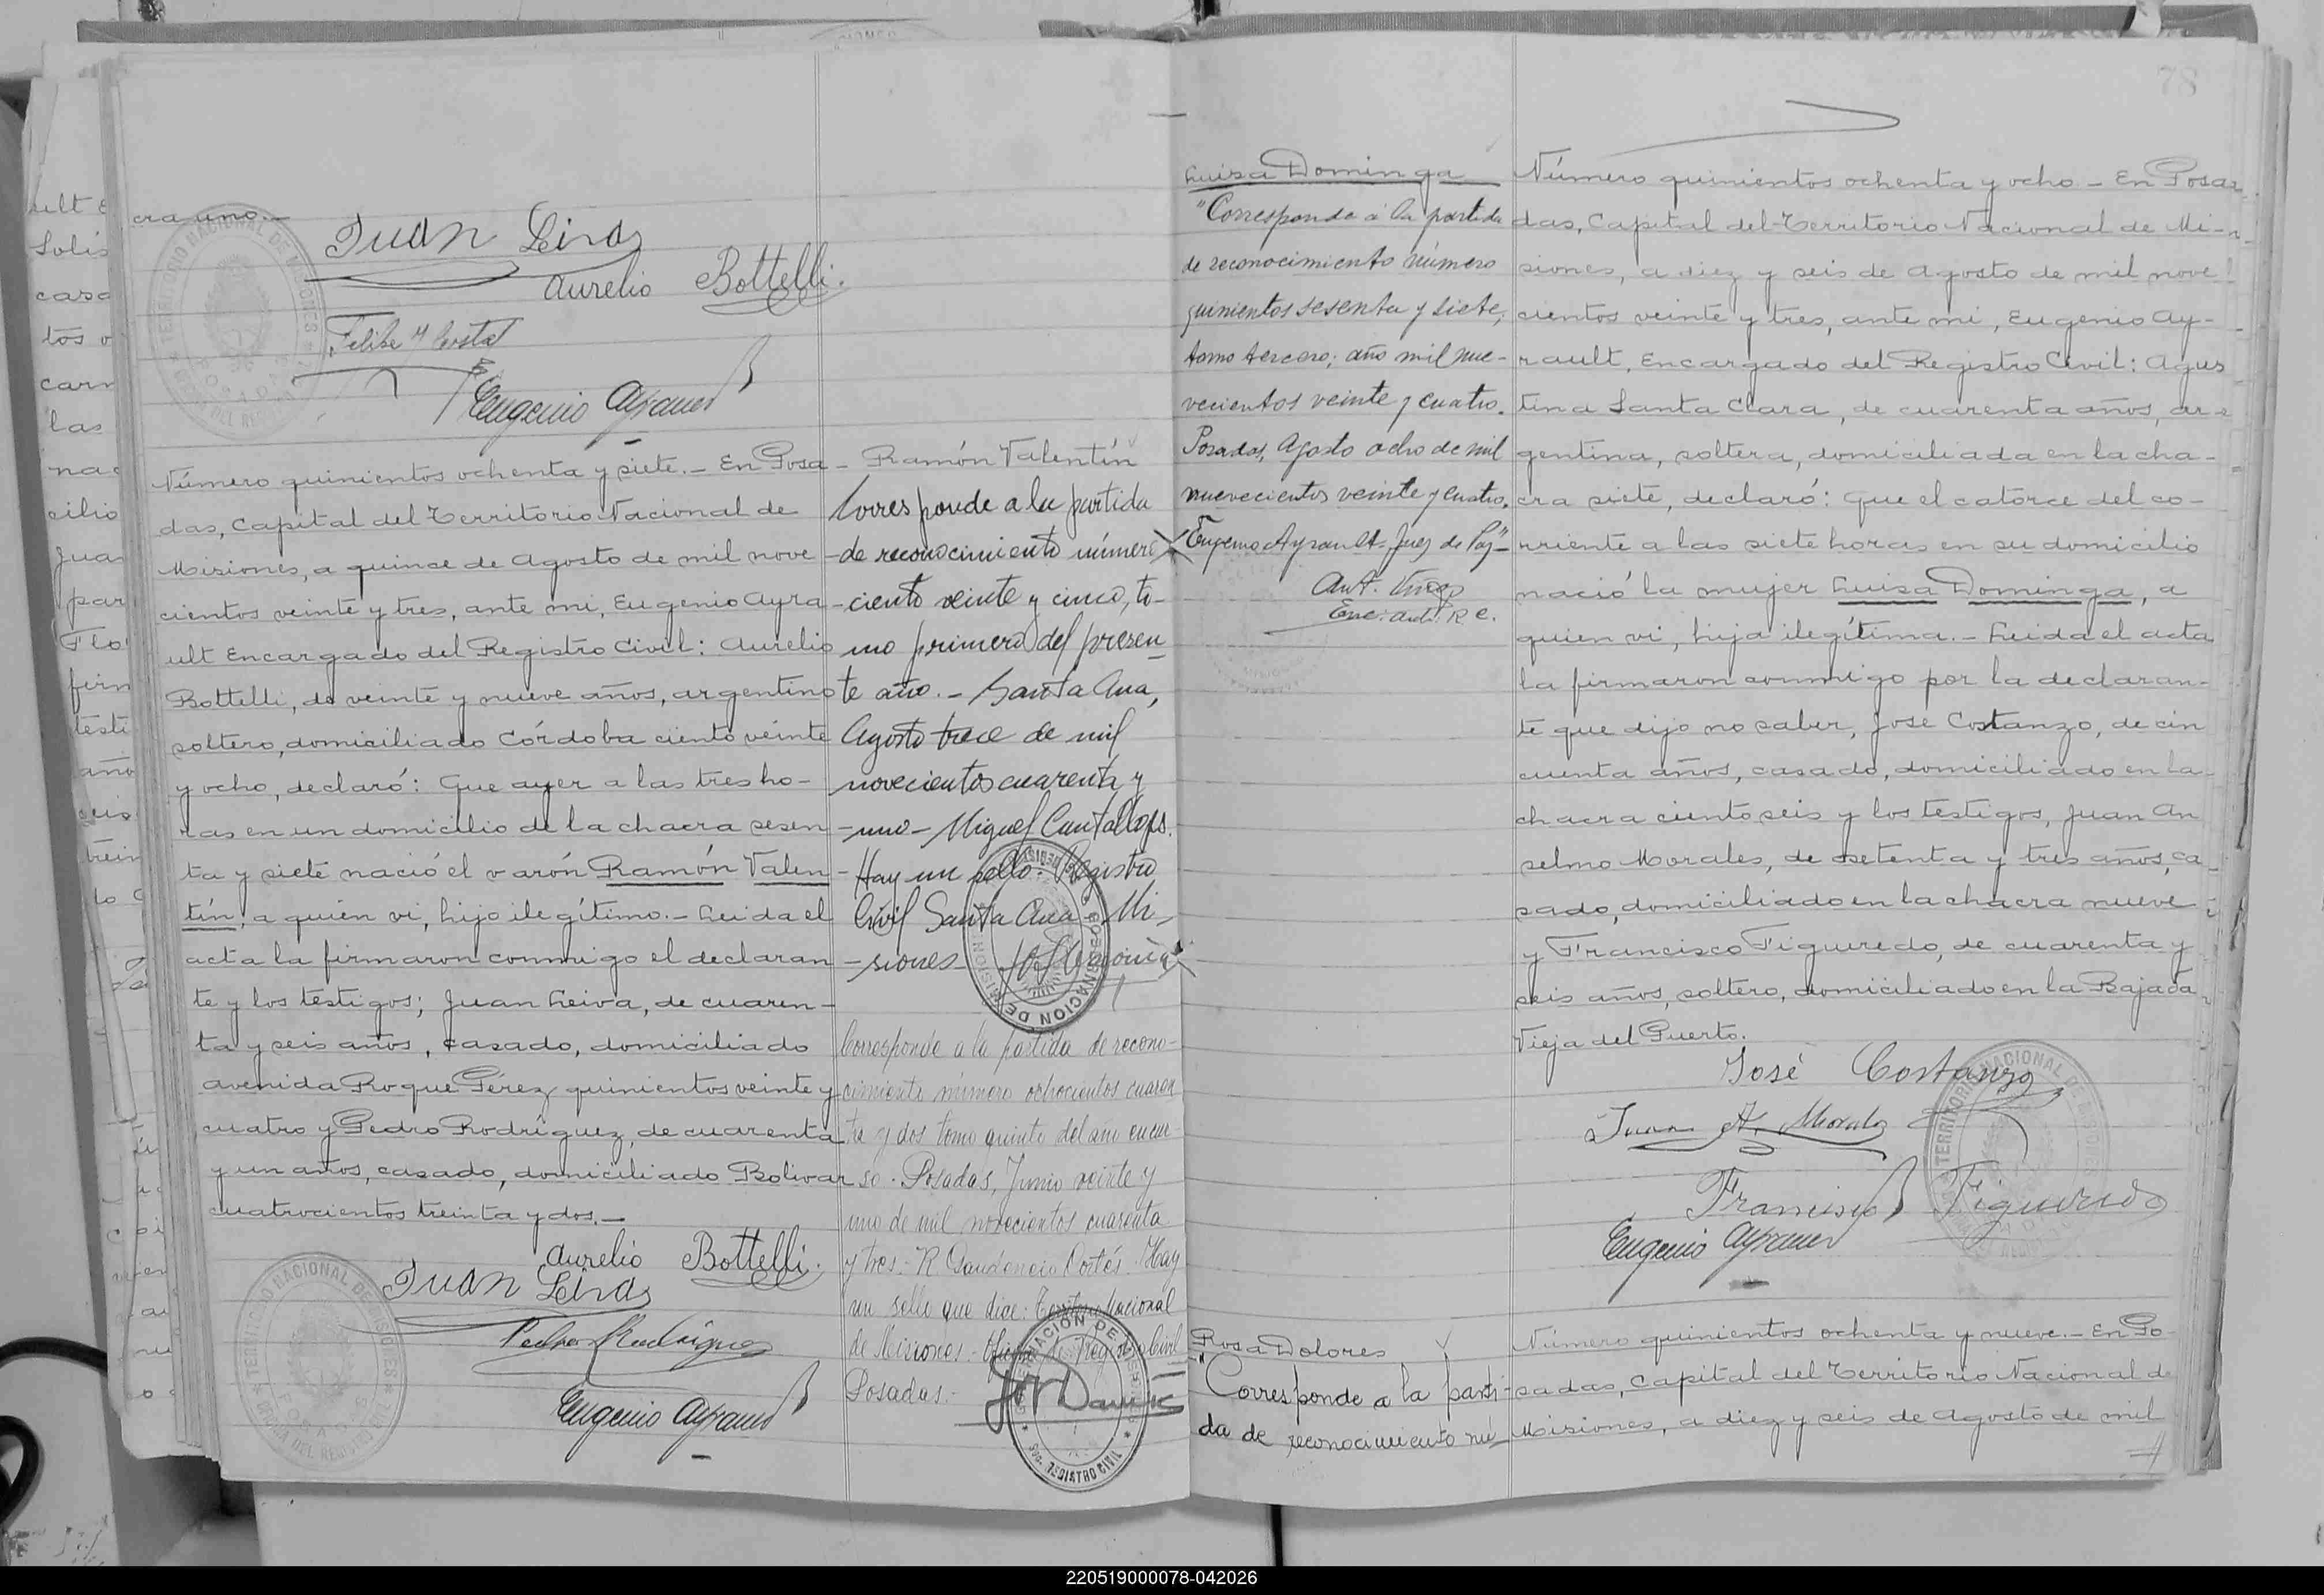 cra uno.—
Juan Leiva
Aurelio Bottelli.
Eugenio Ayrault
Número quinientos ochenta y siete.— En Posa-
das, Capital del Territorio Nacional de
Misiones, a quince de Agosto de mil nove
cientos veinte y tres, ante mi, Eugenio Ayra-
ult Encargado del Registro Civil: Aurelio
Bottelli, de veinte y nueve años, argentino
soltero, domiciliado Córdoba ciento veinte
y ocho, declaró: Que ayer a las tres ho-
ras en un domicilio de la chacra sesen-
ta y siete nació el varón Ramón Valen-
tín, a quien vi, hijo ilegítimo.— Leida el
acta la firmaron conmigo el declaran-
te y los testigos; Juan Leiva, de cuaren-
ta y seis años, casado, domiciliado
avenida Roque Pérez quinientos veinte y
cuatro y Pedro Rodríguez, de cuarenta
y un años, casado, domiciliado Bolivar
cuatrocientos treinta y dos.—
Aurelio Bottelli.
Juan Leiva
Pedro Rodríguez
Eugenio Ayrault
Ramón Valentín
Corresponde a la partida
de reconocimiento número
ciento veinte y cinco, to-
mo primero del presen-
te año.— Santa Ana,
Agosto trece de mil
novecientos cuarenta y
uno— Miguel Cantallops.
Hay un sello: Registro
Civil Santa Ana— Mi-
siones—
Corresponde a la partida de recono-
cimiento número ochocientos cuaren
ta y dos tomo quinto del año en cur-
so.- Posadas, Junio veinte y
uno de mil novecientos cuarenta
y tres.- R Gaudencio Cortés. Hay
un sello que dice: Territorio Nacional
de Misiones.- Oficina de Registro Civil
Posadas.-
78
Luisa Dominga
"Corresponde á la partida
de reconocimiento número
quinientos sesenta y siete,
tomo tercero; año mil nue-
vecientos veinte y cuatro.
Posadas, Agosto ocho de mil
nuevecientos veinte y cuatro.
Eugenio Ayrault= Juez de Paz"
Número quinientos ochenta y ocho.— En Posa-
das, Capital del Territorio Nacional de Mi-
siones, a diez y seis de Agosto de mil nove
cientos veinte y tres, ante mi, Eugenio Ay-
rault, Encargado del Registro Civil: Agus
tina Santa Clara, de cuarenta años, ar-
gentina, soltera, domiciliada en la cha-
cra siete, declaró: Que el catorce del co-
rriente a las siete horas en su domicilio
nació la mujer Luisa Dominga, a
quien vi, hija ilegítima.— Leida el acta
la firmaron conmigo por la declaran-
te que dijo no saber, Jose Costanzo, de cin
cuenta años, casado, domiciliado en la
chacra ciento seis y los testigos, Juan An
selmo Morales, de setenta y tres años, ca
sado, domiciliado en la chacra nueve
y Francisco Figueredo, de cuarenta y
seis años, soltero, domiciliado en la Bajada
Vieja del Puerto.
José Costanzo
Juan A. Morales
Francisco Figueredo
Eugenio Ayrault
Rosa Dolores
"Corresponde a la parti-
da de reconocimiento nú-
Número quinientos ochenta y nueve.— En Po-
sadas, Capital del Territorio Nacional de
Misiones, a diez y seis de Agosto de mil
220519000078-042026